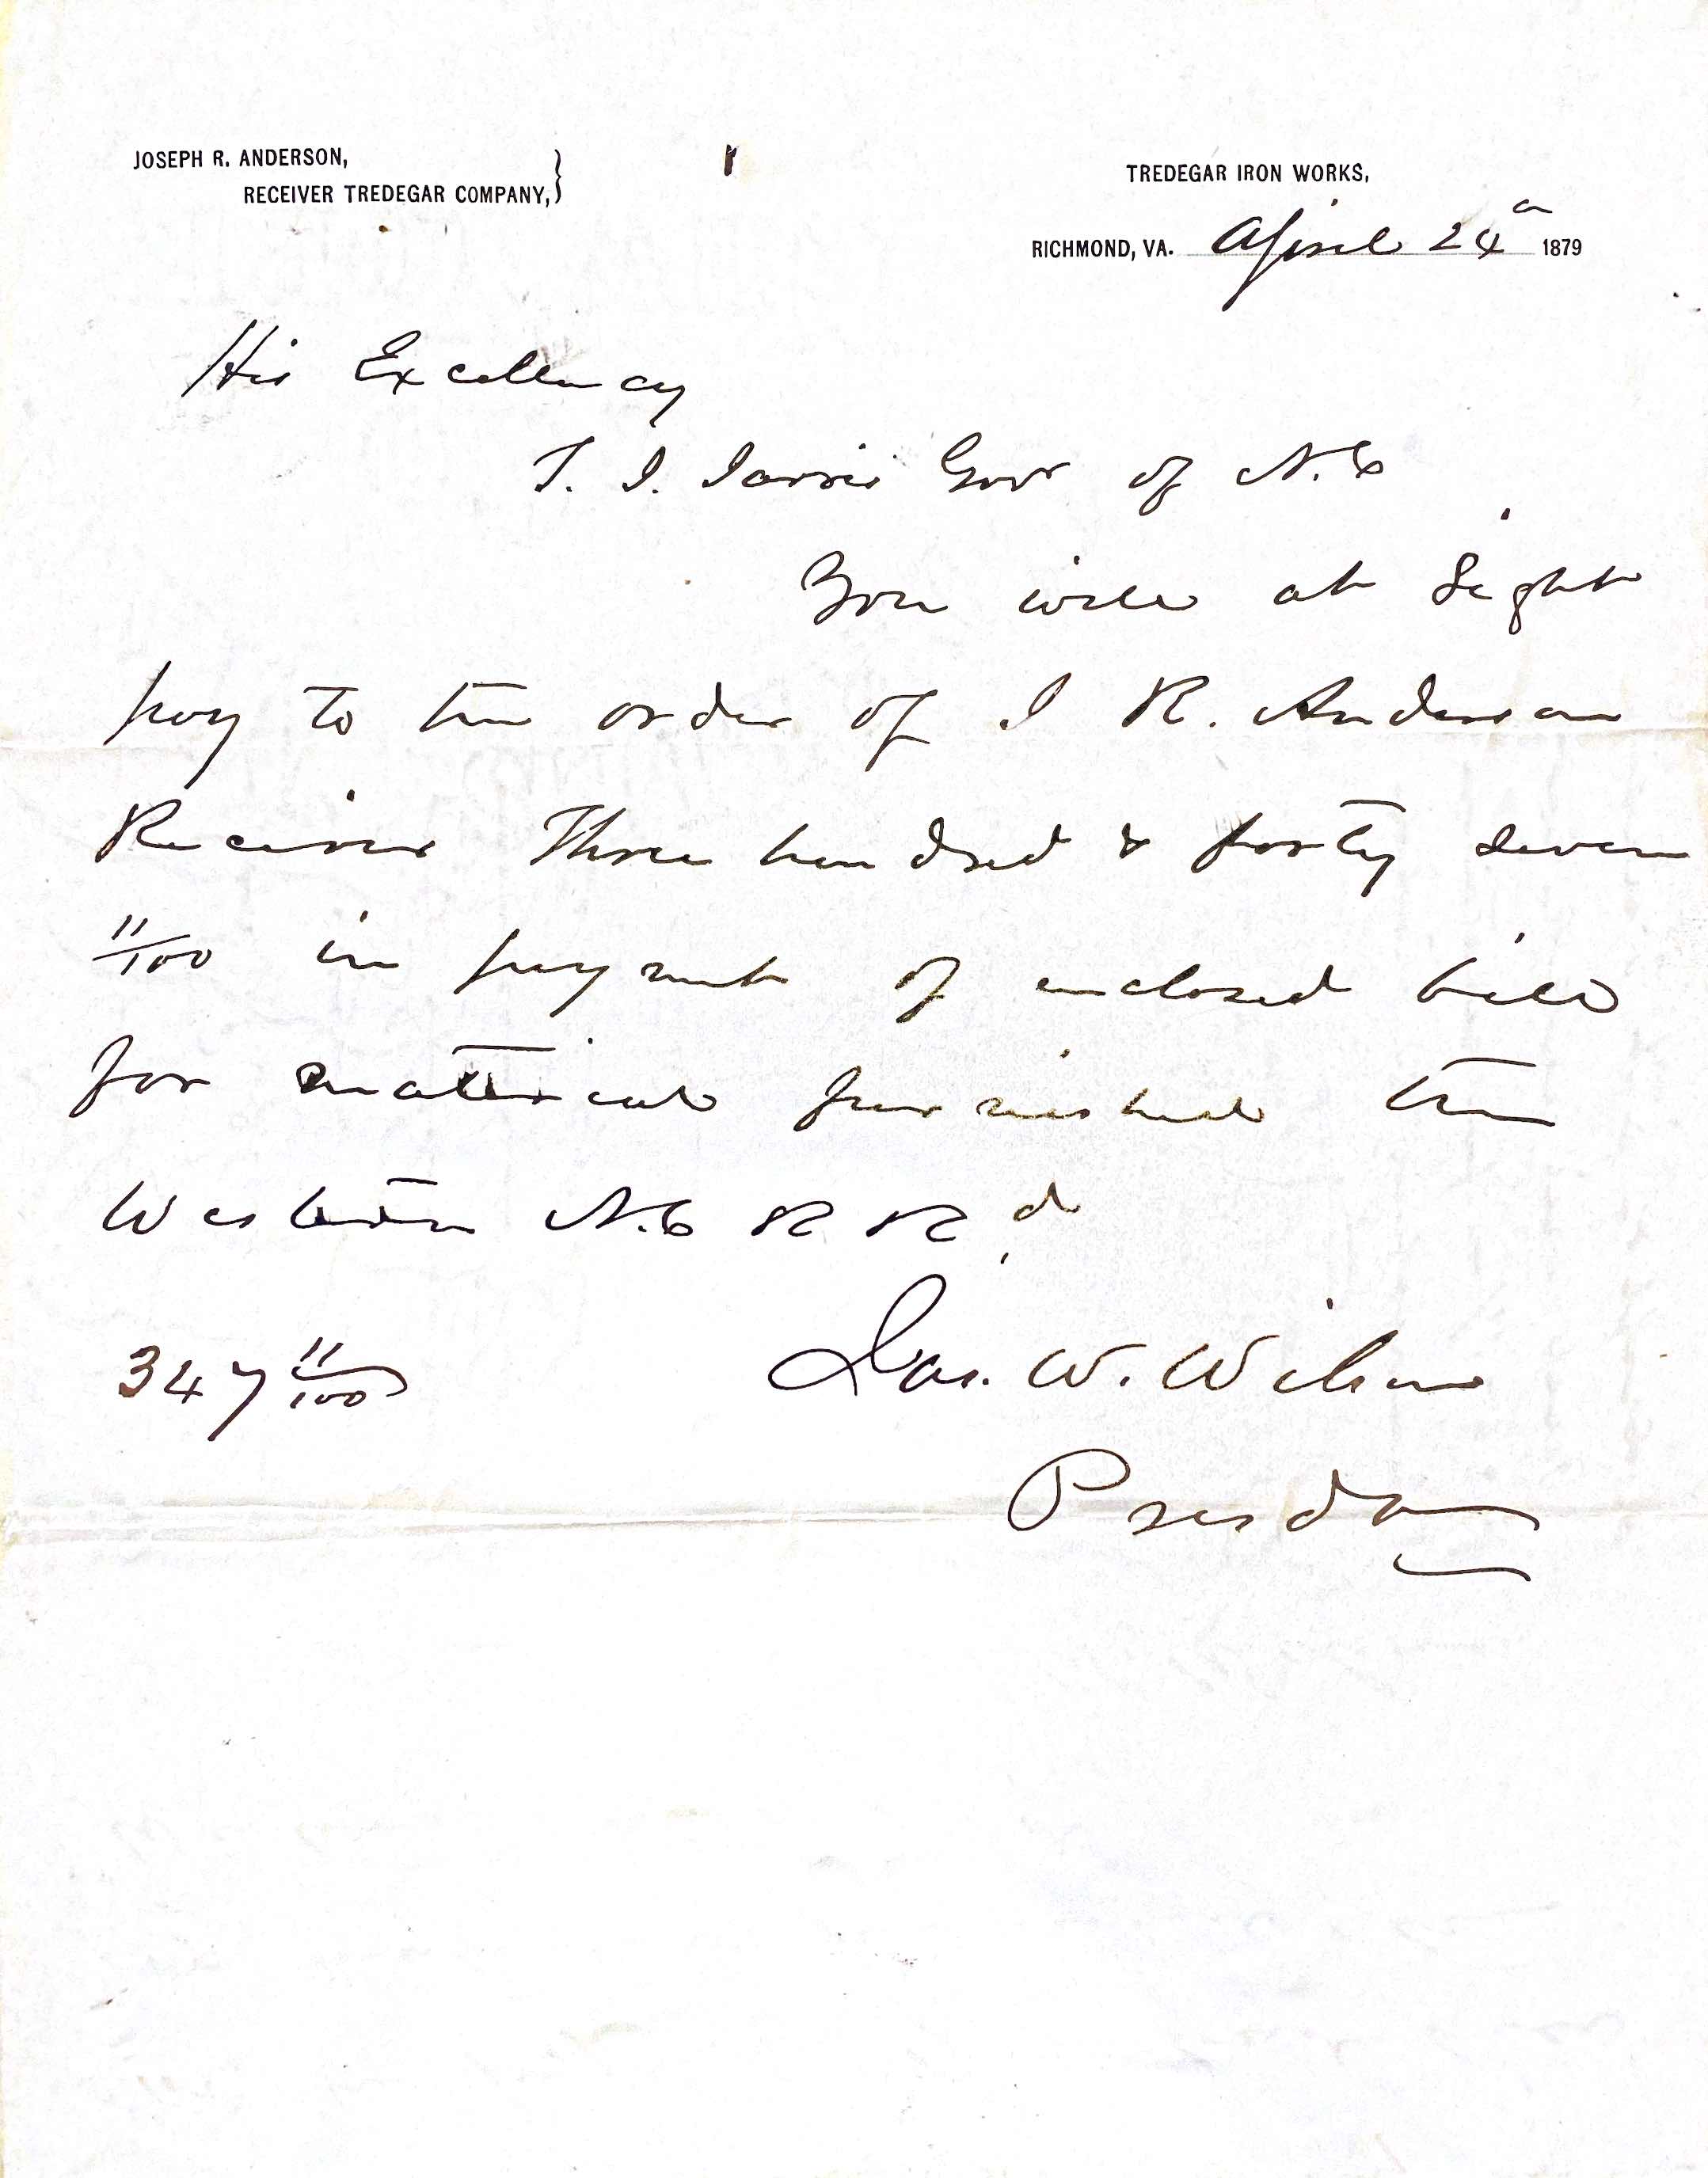 JOSEPH R. ANDERSON,
RECEIVER TREDEGAR COMPANY,}
TREDEGAR IRON WORKS,
RICHMOND, VA. April 24th 1879
His Excellency
T. J. Jarvis Govr of N.C
You will at sight
pay to the order of J R. Anderson
Receiver Three hundred & forty seven
11/100 in payment of enclosed bill
for material furnished the
Western N.C R Rd,
347 11/100
Jas. W. Wilson
President